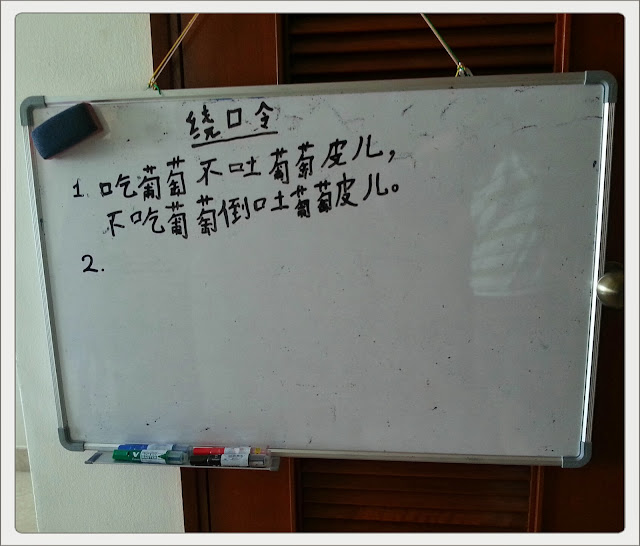 绕口令
1. 吃葡萄不吐葡萄皮儿，
不吃葡萄倒吐葡萄皮儿。
2.